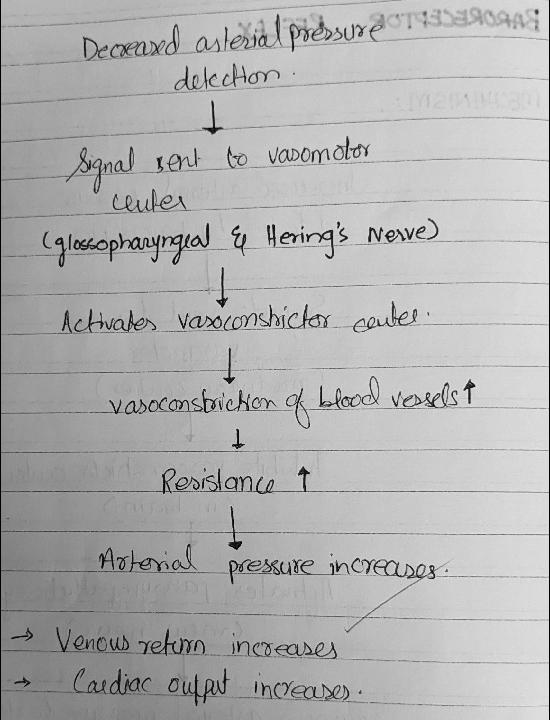 BARORECEPTOR REFLEX
MECHANISM:
Decreased arterial pressure
detection.
↓
Signal sent to vasomotor
center
(glossopharyngeal & Hering's Nerve)
↓
Activates vasoconstrictor center.
↓
vasoconstriction of blood vessels ↑
↓
Resistance ↑
↓
Arterial pressure increases.
→ Venous return increases
→ Cardiac output increases.